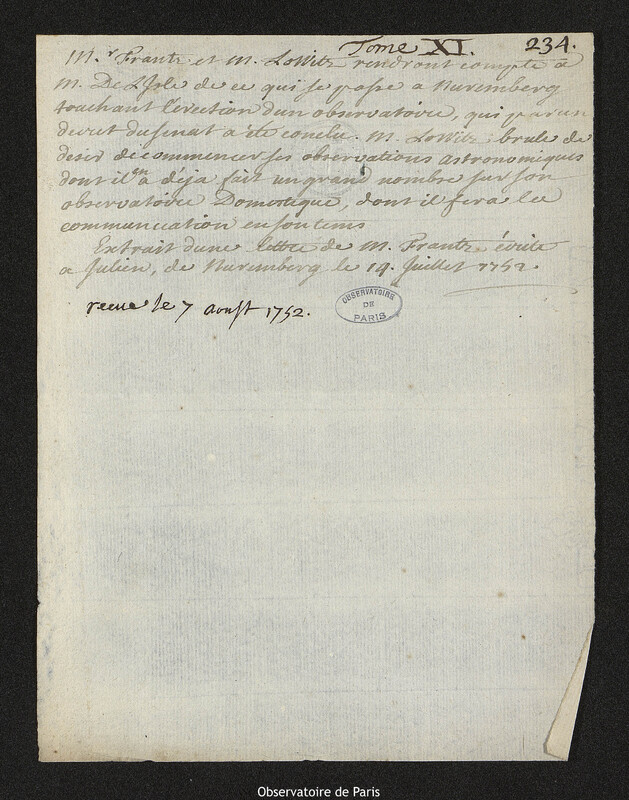 Tome XI. 234.
M.r Frantz et M. Lowitz rendront compte a
M. De L'Isle de ce qui se passe a Nuremberg
touchant l'erection dun observatoire, qui par un
decret du senat a été conclu. M. Lowitz brule de
desir de commencer ses observations astronomiques
dont il en a déja fait un grand nombre sur son
observatoire Domestique, dont il fera la
communication en son tems
Extrait dune lettre de M. Frantz écrite
a Julien, de Nuremberg le 19. Juillet 1752.
receue le 7 aoust 1752.
OBSERVATOIRE
DE
PARIS
Observatoire de Paris